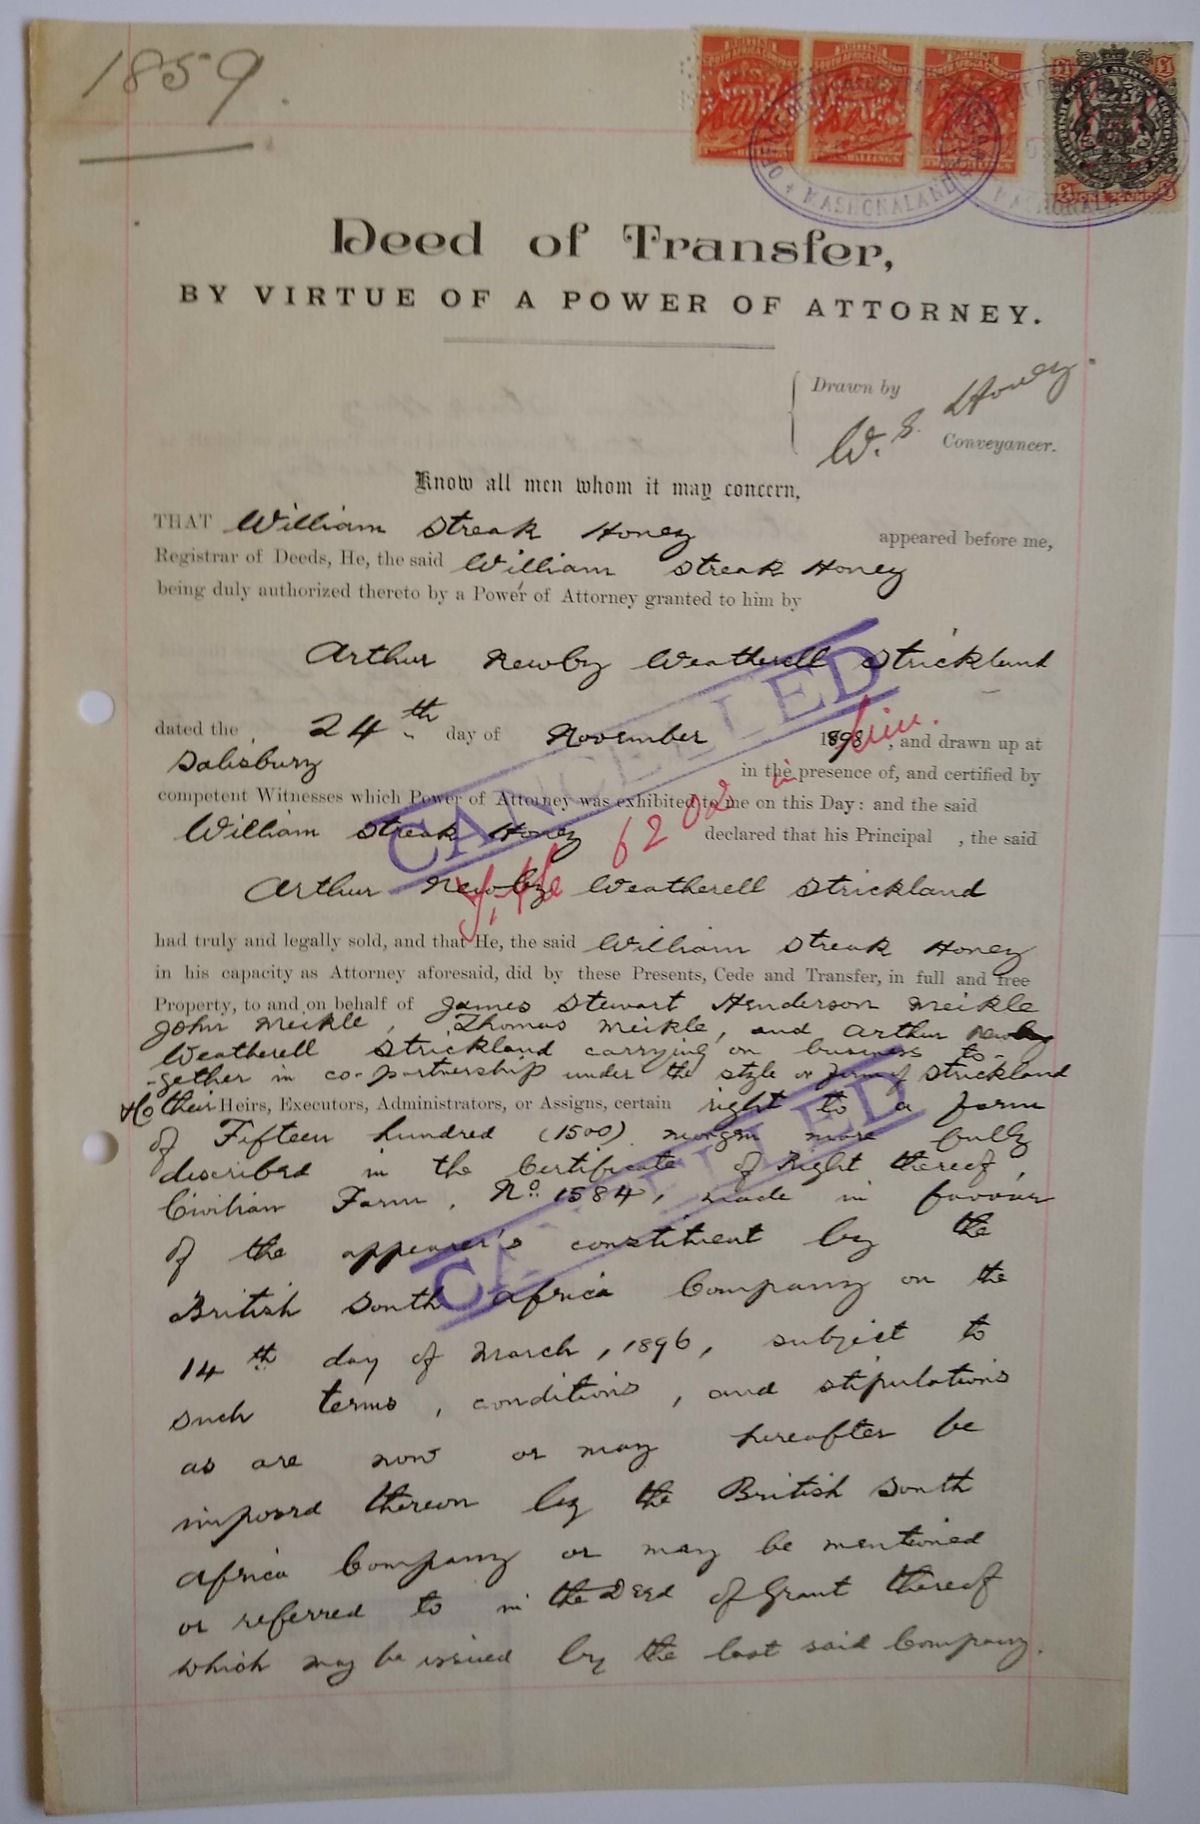 1859.
BRITISH SOUTH AFRICA COMPANY
£1 £1
ONE POUND
MASHONALAND
MASHONALAND
Deed of Transfer,
BY VIRTUE OF A POWER OF ATTORNEY.
Drawn by
W. S. Honey
Conveyancer.
Know all men whom it may concern,
THAT William Streak Honey appeared before me,
Registrar of Deeds, He, the said William Streak Honey
being duly authorized thereto by a Power of Attorney granted to him by
Arthur Newby Weatherell Strickland
dated the 24th day of November 1898, and drawn up at
Salisbury in the presence of, and certified by
competent Witnesses which Power of Attorney was exhibited to me on this Day: and the said
William Streak Honey declared that his Principal , the said
Arthur Newby Weatherell Strickland
CANCELLED
6202 in
had truly and legally sold, and that He, the said William Streak Honey
in his capacity as Attorney aforesaid, did by these Presents, Cede and Transfer, in full and free
Property, to and on behalf of James Stewart Henderson Meikle
John Meikle, Thomas Meikle, and Arthur Newby
Weatherell Strickland carrying on business to-
-gether in co-partnership under the style or firm of Strickland
&Co their Heirs, Executors, Administrators, or Assigns, certain right to a farm
of Fifteen hundred (1500) morgen more fully
described in the Certificate of Right thereof,
Civilian Farm, No. 1584, made in favour
of the appearer's constituent by the
British South Africa Company on the
14th day of March, 1896, subject to
such terms, conditions, and stipulations
as are now or may hereafter be
imposed thereon by the British South
Africa Company or may be mentioned
or referred to in the Deed of Grant thereof
which may be issued by the last said Company.
CANCELLED